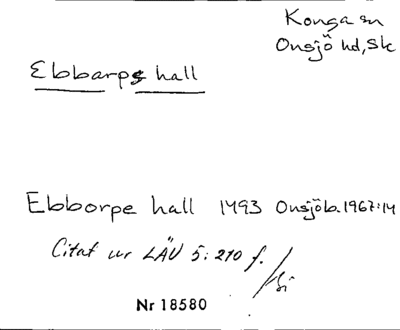 Konga sn
Onsjö hd, Sk
Ebbarps hall
Ebborpe hall 1493 Onsjöb. 1967:14
Citat ur LÄU 5: 210 f.
/Si
Nr 18580